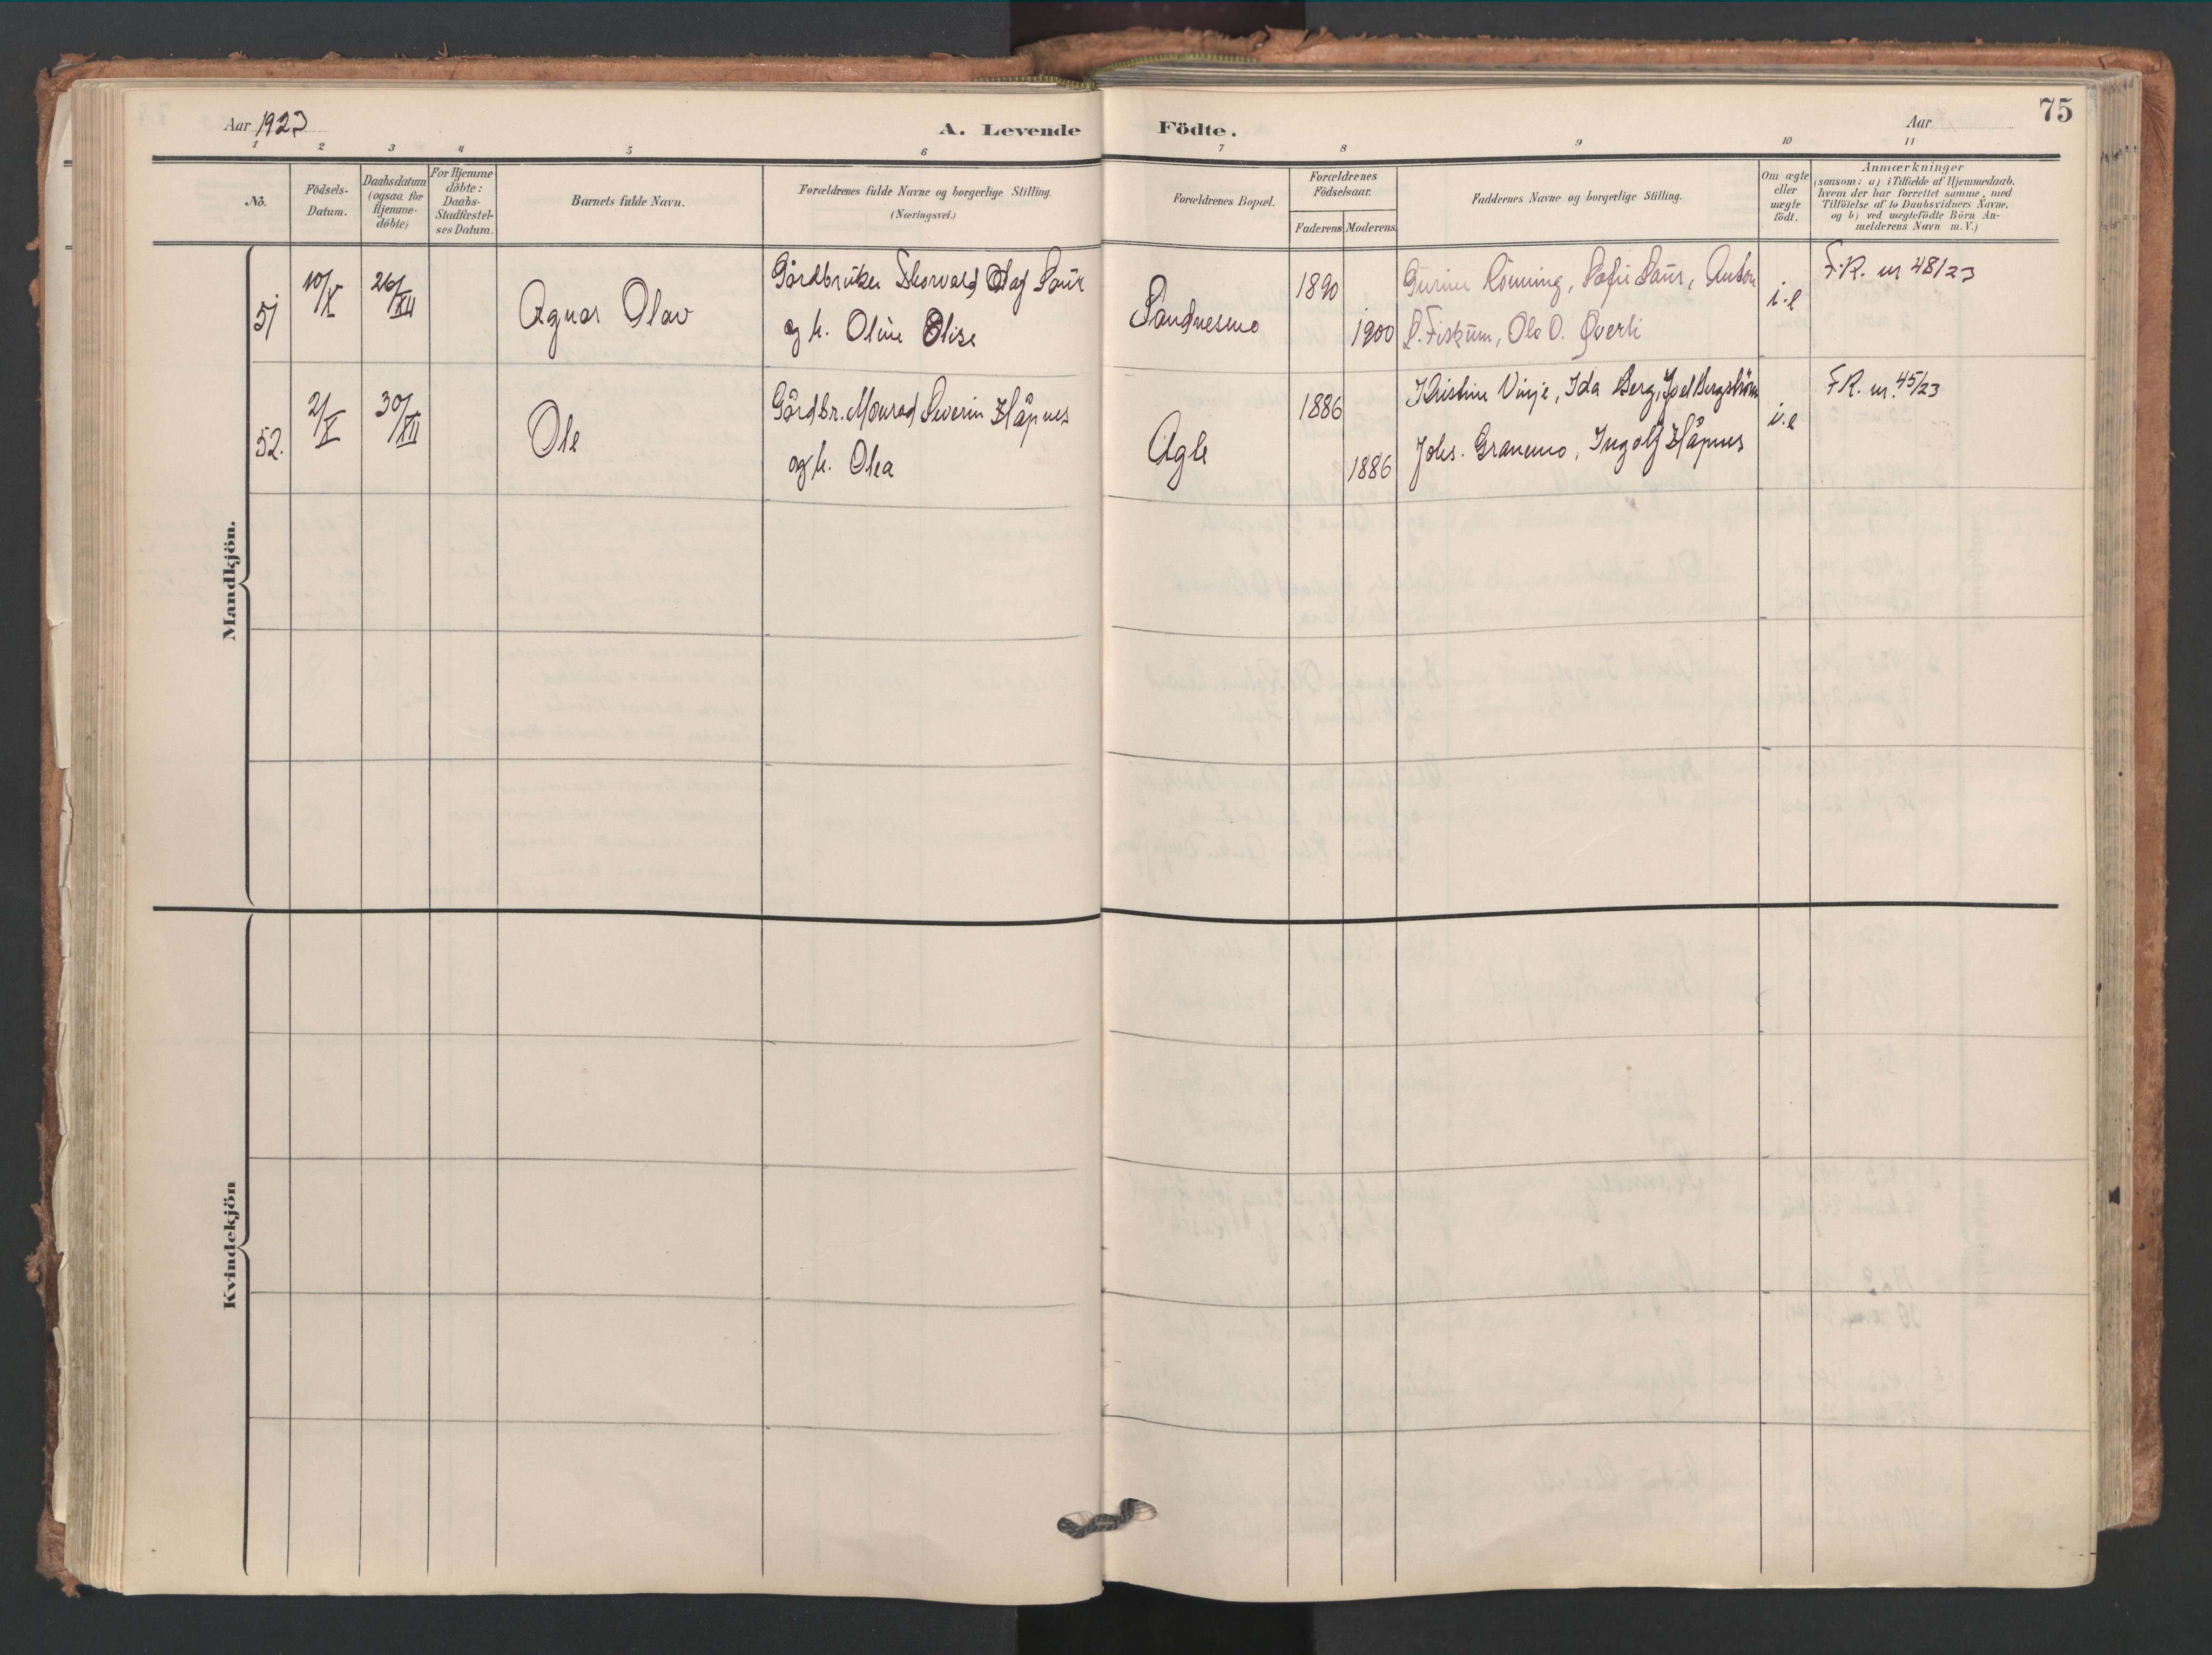 Aar 1923
A. Levende Födte.
Aar
75
1 2 3 4 5 6 7 8 9 10 11
No.
Födsels-
Datum.
Daabsdatum
(ogsaa for
Hjemme-
döbte)
For Hjemme
döbte:
Daabs-
Stadfæstel-
ses Datum.
Barnets fulde Navn.
Forældrenes fulde Navne og borgerlige Stilling.
(Næringsvei.)
Forældrenes Bopæl.
Forældrenes
Födselsaar.
Faderens Moderens
Faddernes Navne og borgerlige Stilling.
Om ægte
eller
uægte
födt.
Anmærkninger
(saasom: a) i Tilfælde af Hjemmedaab,
hvem der har forrettet samme, med
Tilföielse af to Daabsvidners Navne,
og b) ved uægtefödte Börn An-
melderens Navn m. V.)
Mandkjön.
51 10/X 26/XII Agnar Olav
Gårdbruker Thorvald Olaf Saur
og h. Oline Elise
Sandnesmo
1890
1900
Gurine Rönning, Sofie Saur, Anton
L. Fiskum, Ole O. Överli
i-e
F.R. nr 48/23
52. 2/X 30/XII Ole
Gårdbr. Monrad Severin Håpnes
og h. Olea
Agle
1886
1886
Kristine Vinje, Ida Berg, Joel Bergström
Johs. Granemo, Ingolf Håpnes
i.e
F.R. nr. 45/23
Kvindekjön